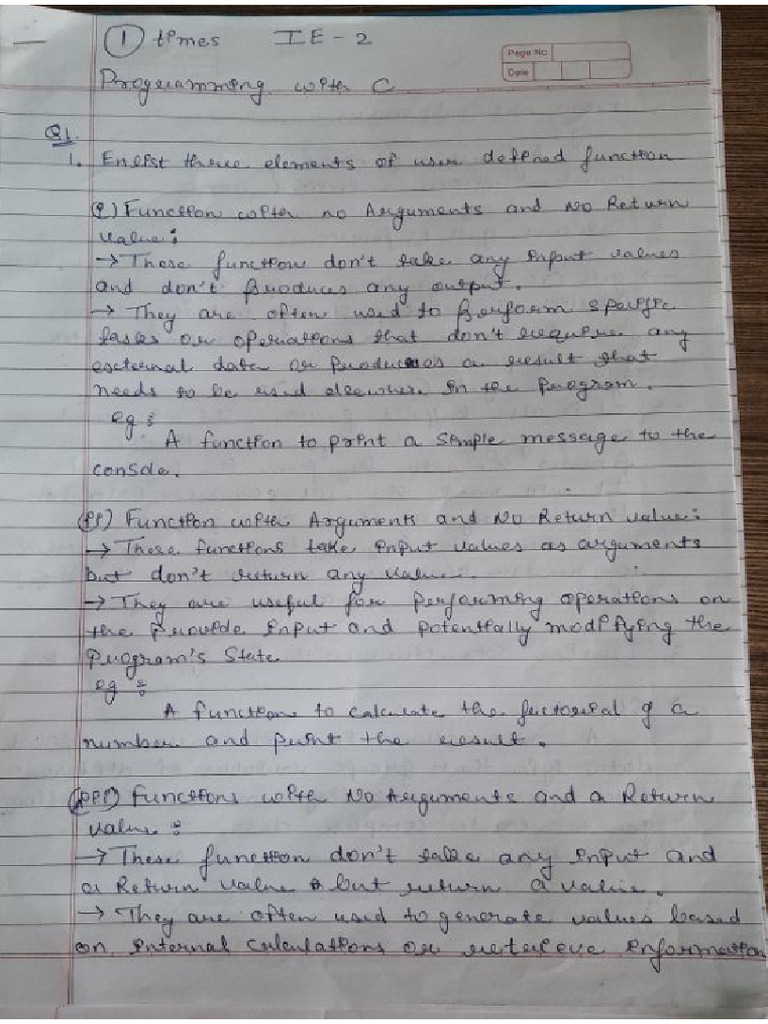 ① times IE-2
Page No
Date
Programming with C
Q1.
1. Enlist three elements of user defined function
(i) Function with no Arguments and No Return
value:
→ These function don't take any input values
and don't produces any output.
→ They are often used to perform specific
tasks or operations that don't require any
external data or produces a result that
needs to be used elsewhere in the program.
eg :
A function to print a simple message to the
console.
(ii) Function with Arguments and No Return value:
→ These functions take input values as arguments
but don't return any value.
→ They are useful for performing operations on
the provide input and potentially modifying the
program's state
eg :
A function to calculate the factorial of a
number and print the result.
(iii) Functions with No Arguments and a Return
value :
→ These function don't take any input and
a Return value but return a value.
→ They are often used to generate values based
on internal calculations or retrieve information